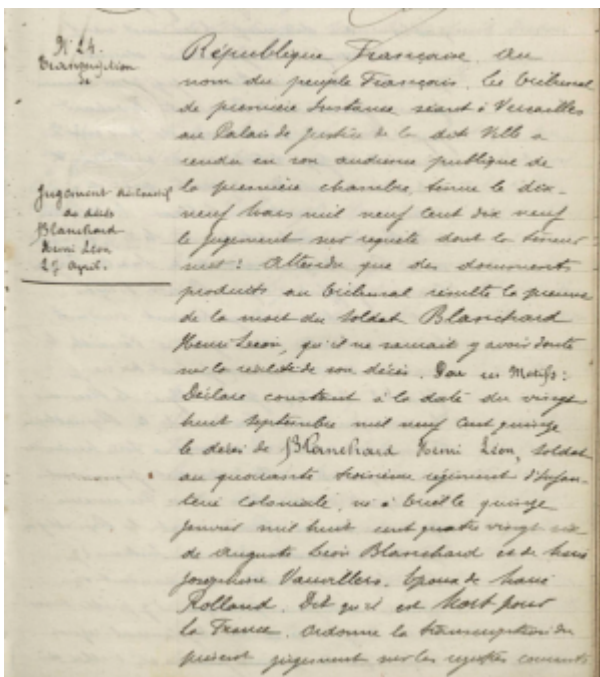 N° 24.
Transcription
de
Jugement déclaratif
de décès
Blanchard
Henri Léon
29 April.
République Française. Au
nom du peuple Français. Le Tribunal
de première Instance séant à Versailles
au Palais de Justice de la dite Ville a
rendu en son audience publique de
la première chambre, tenue le dix-
neuf Mars mil neuf cent dix neuf
le jugement sur requête dont la teneur
suit: Attendu que des documents
produits au Tribunal résulte la preuve
de la mort du soldat Blanchard
Henri Léon, qu'il ne saurait y avoir doute
sur la réalité de son décès. Par ces Motifs:
Déclare constant à la date du vingt
huit septembre mil neuf cent quinze
le décès de Blanchard Henri Léon, soldat
au quarante troisième régiment d'Infan-
terie coloniale, né à le quinze
janvier mil huit cent quatre vingt six
de Auguste Léon Blanchard et de Marie
Joséphine Vauvillers. Epoux de Marie
Rolland. Dit qu'il est Mort pour
la France. Ordonne la transcription du
présent jugement sur les registres courants